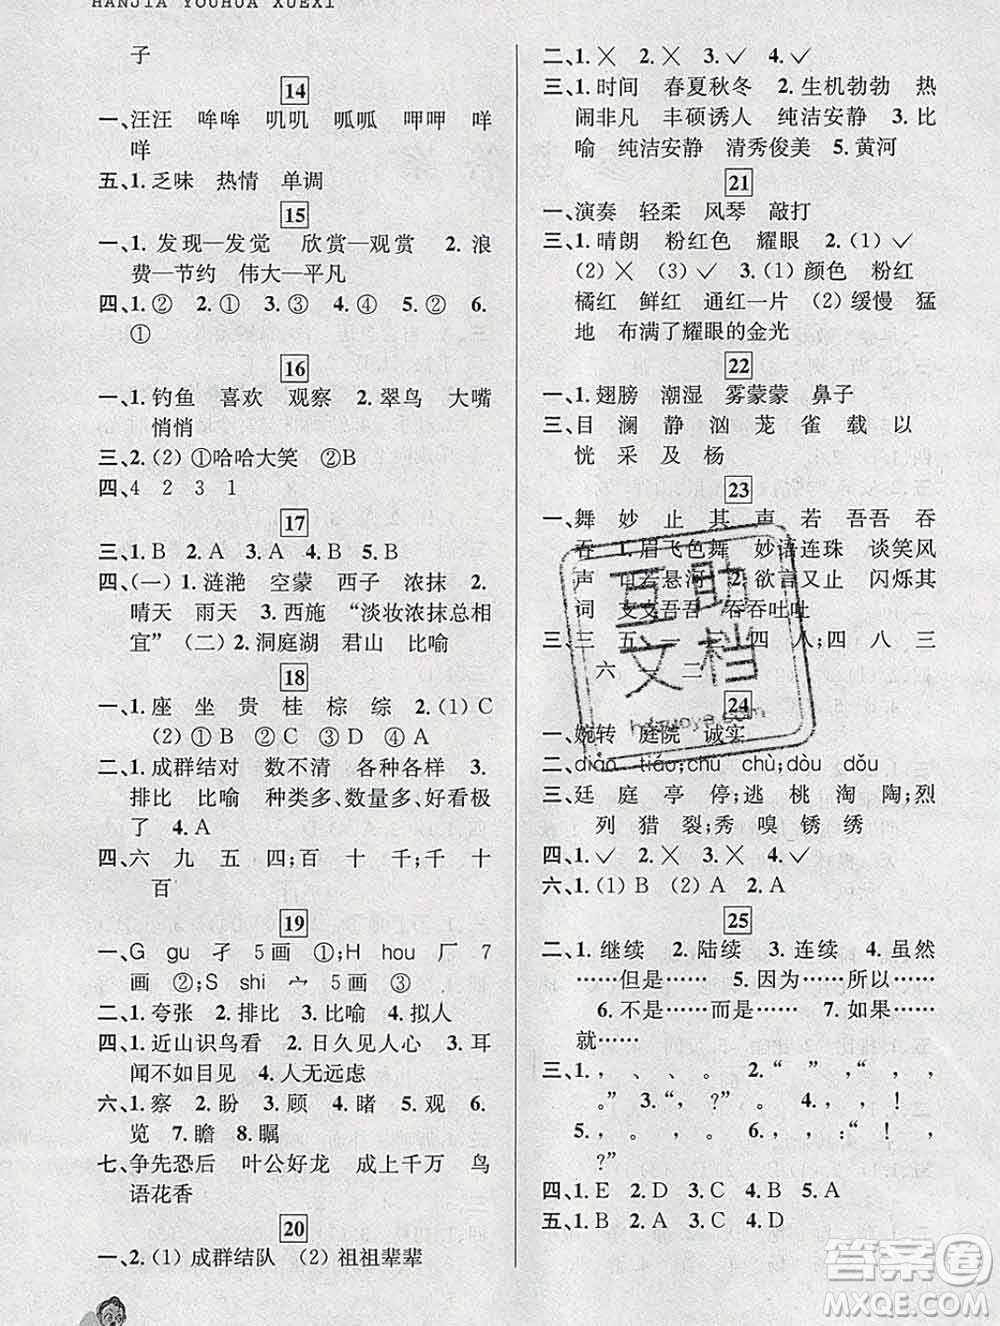 HANJIA YOUHUA XUEXI
子
14
一、汪汪 哞哞 叽叽 呱呱 呷呷 咩
咩
五、1.乏味 热情 单调
15
一、1.发现—发觉 欣赏—观赏 2.浪
费—节约 伟大—平凡
四、1.② 2.① 3.③ 4.① 5.② 6.
①
16
一、1.钓鱼 喜欢 观察 2.翠鸟 大嘴
悄悄
三、2.(2) ①哈哈大笑 ②B
四、4 2 3 1
17
三、1.B 2.A 3.A 4.B 5.B
四、(一)1.涟滟 空蒙 西子 浓抹 2.
晴天 雨天 3.西施 “淡妆浓抹总相
宜” (二)2.洞庭湖 君山 比喻
18
一、1.座 坐 贵 桂 棕 综 2.(1)C
(2)①B ②C ③D ④A
二、1.成群结对 数不清 各种各样 3.
排比 比喻 种类多、数量多、好看极
了 4.A
四、六 九 五 四;百 十 千;千 十
百
19
一、G gu 孑 5画 ①;H hou 厂 7
画 ②;S shi 宀 5画 ③
二、1.夸张 2.排比 3.比喻 4.拟人
四、1.近山识鸟看 2.日久见人心 3.耳
闻不如目见 4.人无远虑
六、1.察 2.盼 3.顾 4.睹 5.观 6.
览 7.瞻 8.瞩
七、争先恐后 叶公好龙 成上千万 鸟
语花香
20
一、2.(1)成群结队 (2)祖祖辈辈
二、1.╳ 2.╳ 3.✓ 4.✓
三、1.时间 春夏秋冬 2.生机勃勃 热
闹非凡 丰硕诱人 纯洁安静 3.比
喻 纯洁安静 清秀俊美 5.黄河
21
一、演奏 轻柔 风琴 敲打
三、1.晴朗 粉红色 耀眼 2.(1)✓
(2)╳ (3)✓ 3.(1)颜色 粉红
橘红 鲜红 通红一片 (2)缓慢 猛
地 布满了耀眼的金光
22
一、1.翅膀 潮湿 雾蒙蒙 鼻子
三、目 澜 静 汹 茏 雀 载 以
恍 采 及 杨
23
一、舞 妙 止 其 声 若 吾吾 吞
吞 1.眉飞色舞 妙语连珠 谈笑风
声 口若悬河 2.欲言又止 闪烁其
词 支支吾吾 吞吞吐吐
三、三 五 一 一 四 八;四 八 三
六 一 二
互助
文档
hdzuoye.com
24
一、婉转 庭院 诚实
二、diān tiáo;chu chù;dòu dǒu
三、廷 庭 亭 停;逃 桃 淘 陶;烈
列 猎 裂;秀 嗅 锈 绣
四、1.✓ 2.╳ 3.╳ 4.✓
六、1.(1)B (2)A 2.A
25
二、1.继续 2.陆续 3.连续 4.虽然
……但是…… 5.因为……所以……
6.不是……而是…… 7.如果……
就……
三、1. , 、 、 。 2. “ ” , “ ,
。” 3. “ , ?” 。 4. “ , , !
5. , , 。 6. “ , , :“ , !
。”
四、1.E 2.D 3.C 4.B 5.A
五、1.B 2.A 3.C 4.D
答案圈
MXQE.COM